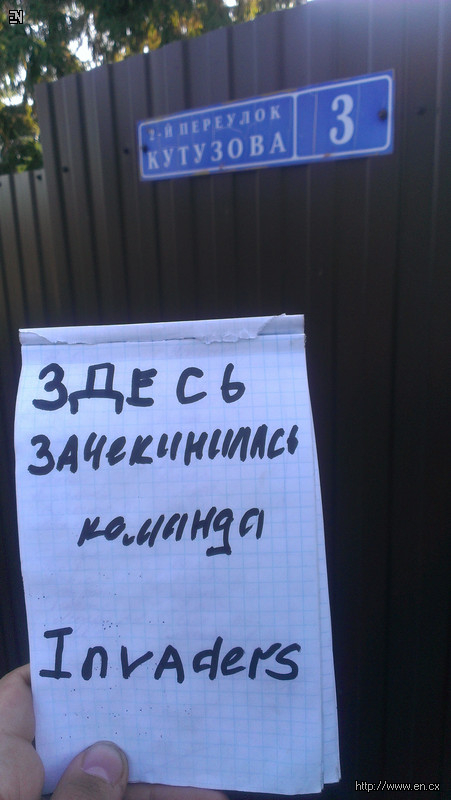 EN
2-Й ПЕРЕУЛОК
КУТУЗОВА
3
ЗДЕСЬ
ЗАЧЕКИНИЛАСЬ
команда
InvAders
http://www.en.cx